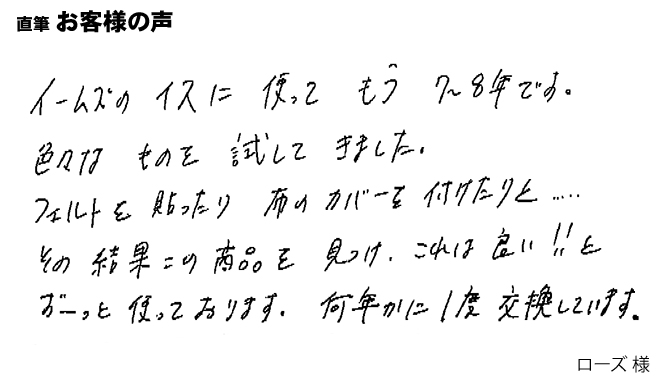 直筆 お客様の声
イームズの イスに 使って もう 7~8年です。
色々な ものを 試して きました。
フェルトを 貼ったり 布の カバーを 付けたりと .....
その 結果 この 商品を 見つけ、これは 良い!!と
ずーっと 使っております。 何年かに 1度 交換しています。
ローズ 様